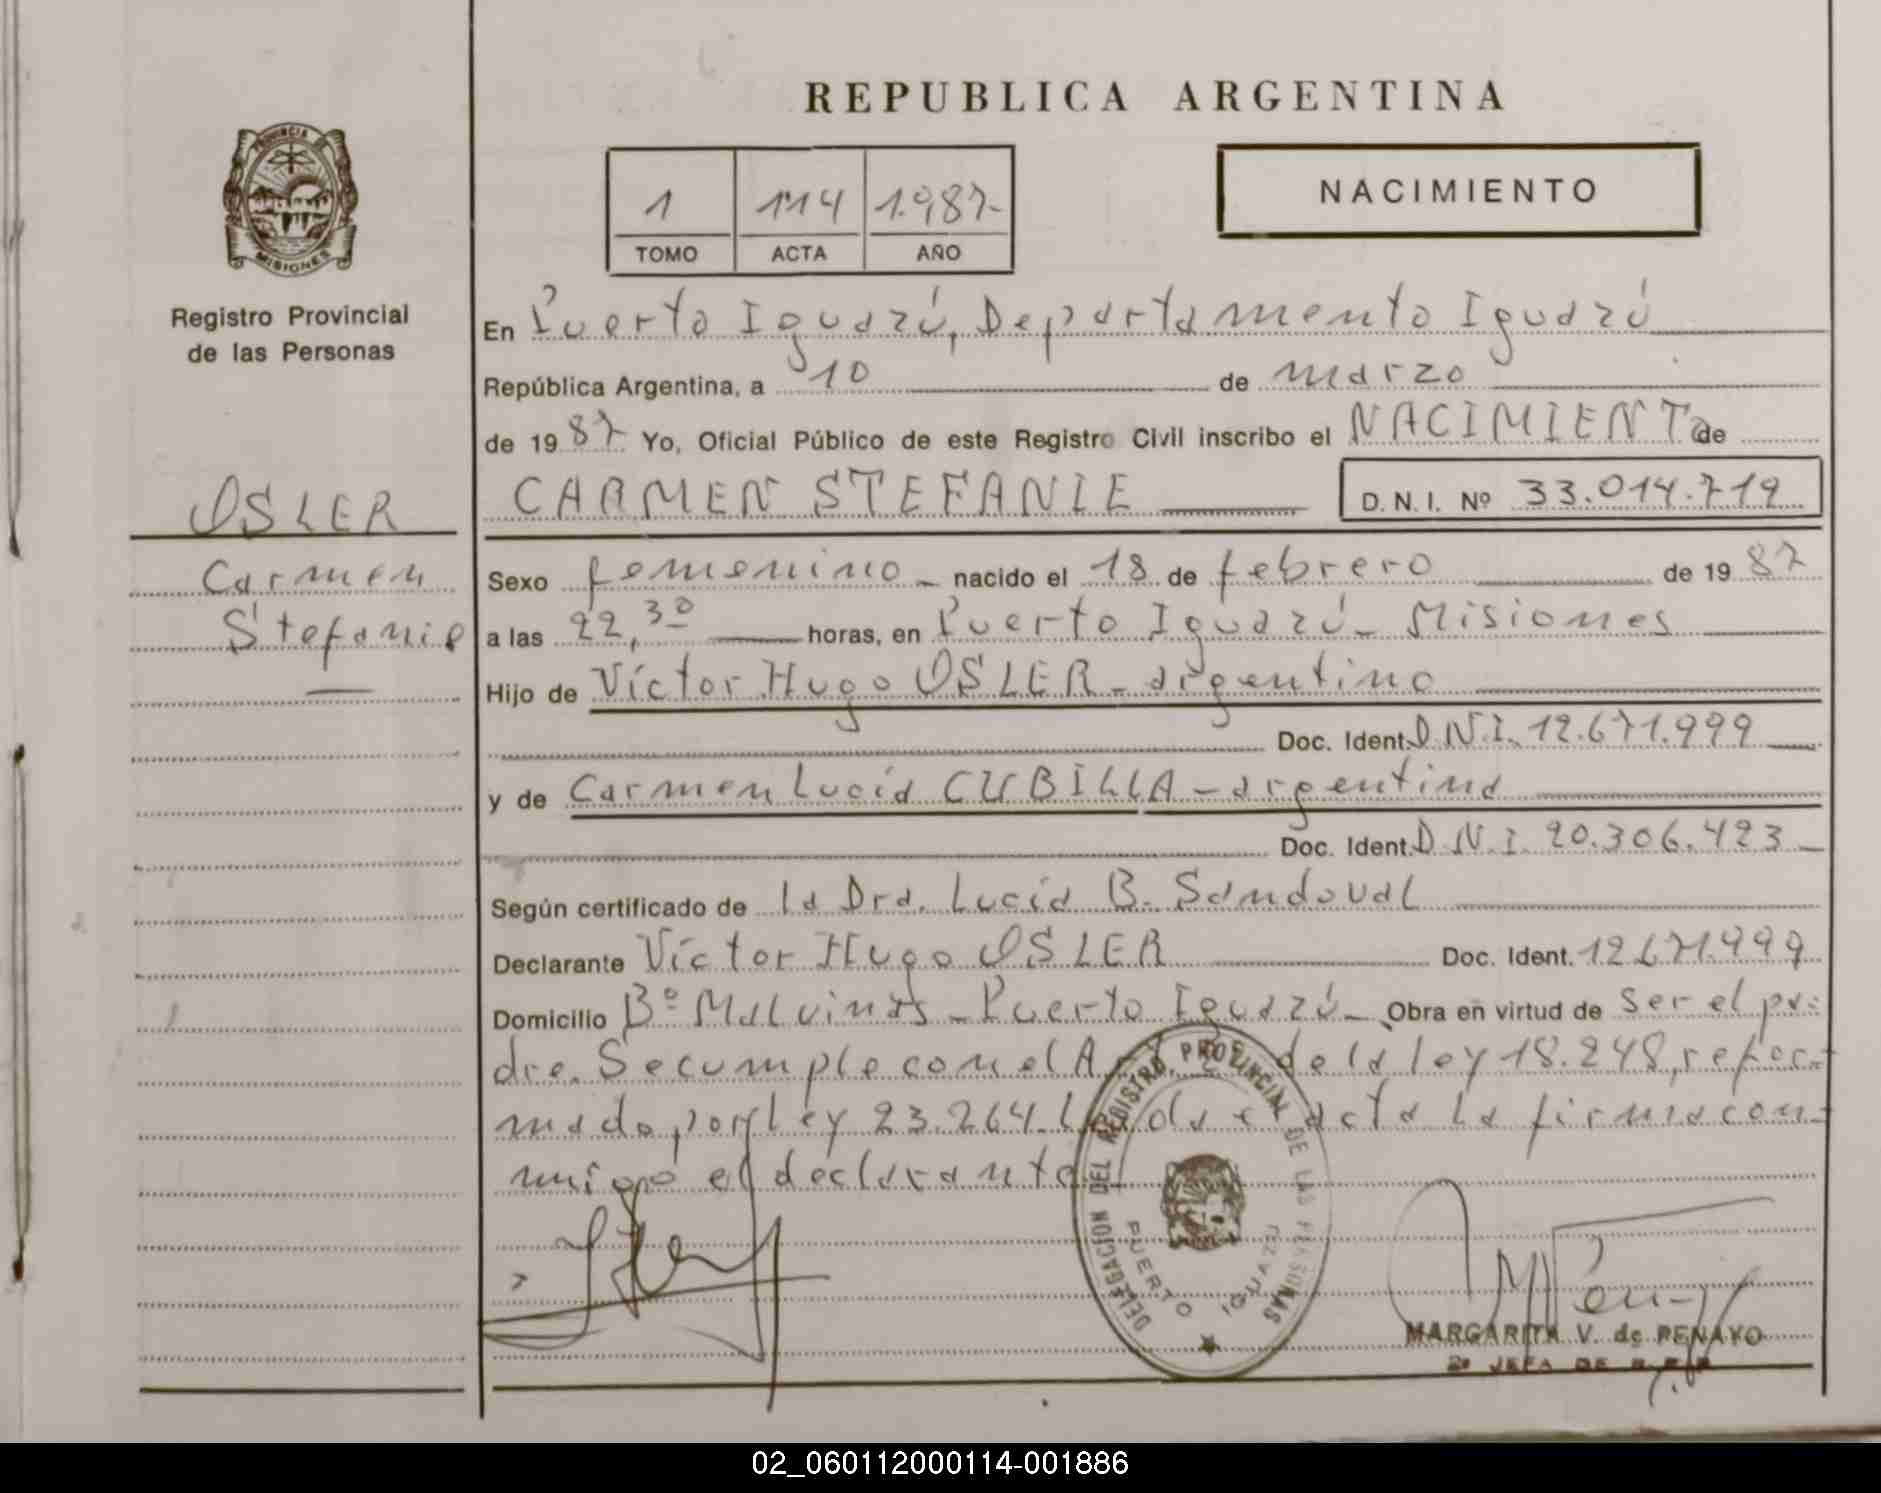 REPUBLICA ARGENTINA
PROVINCIA DE
MISIONES
Registro Provincial
de las Personas
OSLER
Carmen
Stefanie
1 114 1.987-
TOMO ACTA AÑO
NACIMIENTO
En Puerto Iguazú, Departamento Iguazú
República Argentina, a 10 de marzo
de 1987 Yo, Oficial Público de este Registro Civil inscribo el NACIMIENTO de
CARMEN STEFANIE D.N.I. Nº 33.014.719
Sexo femenino - nacido el 18 de febrero de 1987
a las 22,30 horas, en Puerto Iguazú - Misiones
Hijo de Víctor Hugo OSLER - argentino
Doc. Ident. D.N.I. 12.671.999
y de Carmen Lucía CUBILLA - argentina
Doc. Ident. D.N.I. 20.306.423
Según certificado de la Dra. Lucía B. Sandoval
Declarante Víctor Hugo OSLER Doc. Ident. 12.671.999
Domicilio Bº Malvinas - Puerto Iguazú - Obra en virtud de ser el pa-
dre. Se cumple con el de la ley 18.248, refor-
mado por ley 23.264. acta la firma con-
migo el declarante
DELEGACION DEL REGISTRO PROVINCIAL DE LAS PERSONAS
PUERTO IGUAZU
MARGARITA V. de PENAYO
2º JEFA DE
02_060112000114-001886